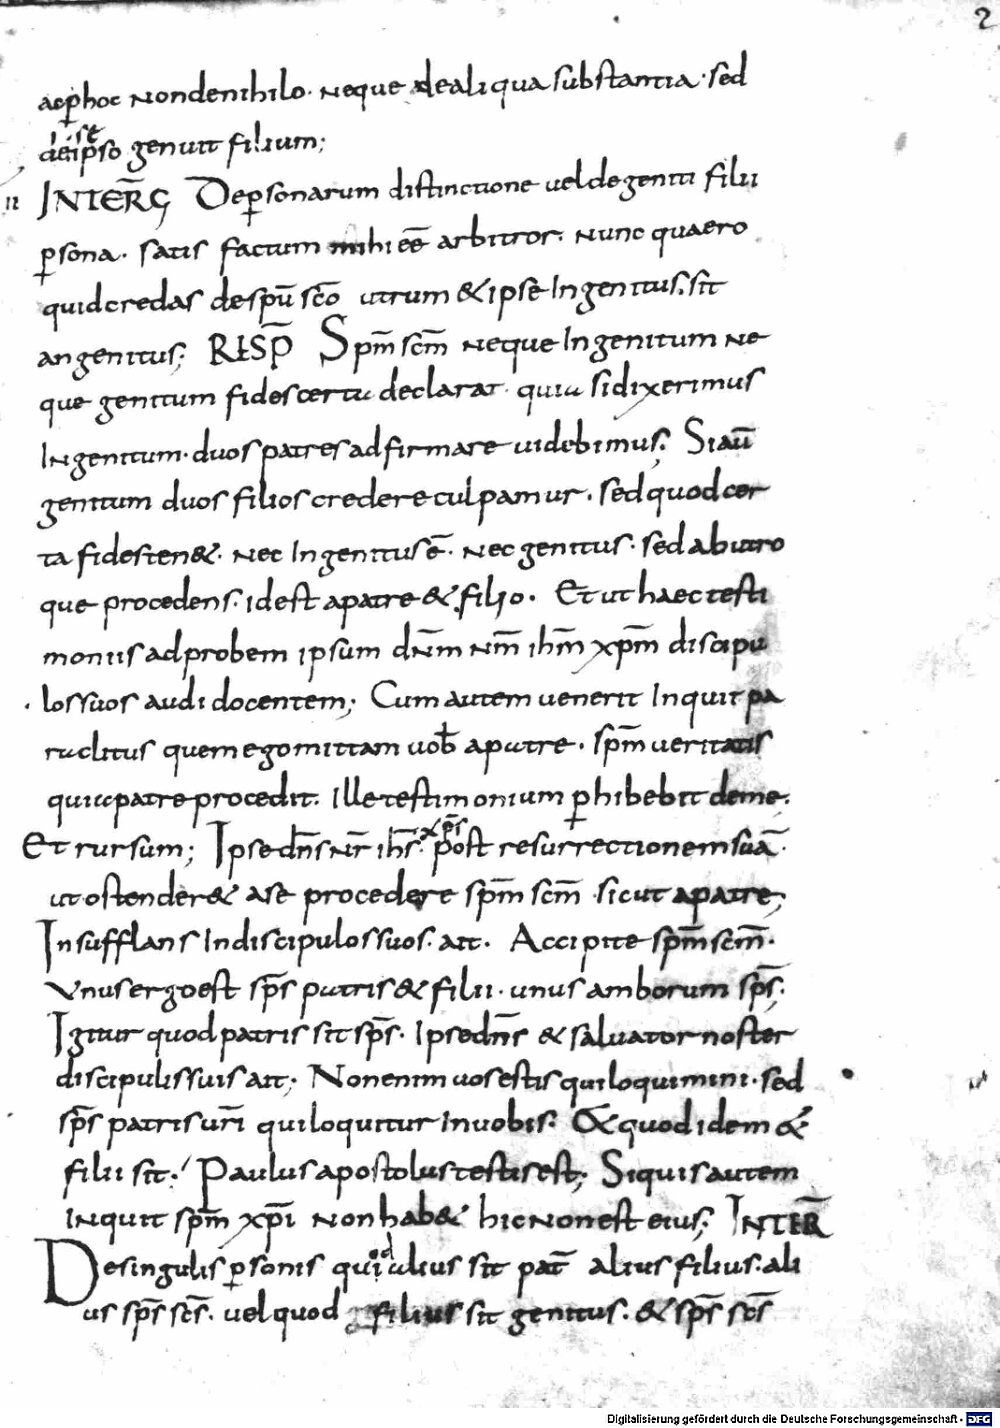 2
ac ꝑ hoc non de nihilo · neque de aliqua substantia · sed
de se ipso genuit filium;
II INTERG De ꝑsonarum distinctione vel de geniti filii
ꝑsona · satis factum mihi eē arbitror · nunc quaero
quid credas de spū scō utrum & ipse Ingenitus · sit
an genitus; RESP̄ Spm̄ scm̄ neque Ingenitum ne
que genitum fides certa declarat · quia si dixerimus
Ingenitum · duos patres adfirmare videbimus; Si aū
genitum duos filios credere culpamur · sed quod cer
ta fides ten& · nec Ingenitus ē · nec genitus · sed ab utro
que procedens · id est a patre & filio · Et ut haec testi
moniis adprobem ipsum dnm̄ nm̄ ihm̄ xpm̄ discipu
los suos audi docentem; Cum autem venerit Inquit pa
raclitus quem ego mittam vob a patre · spm̄ veritatis
qui a patre procedit · Ille testimonium ꝑhibebit de me ·
Et rursum; Ipse dn̄s nr̄ ihs̄ xp̄s post resurrectionem suā ·
ut ostender& a se procedere spm̄ scm̄ · sicut a patre;
Insufflans In discipulos suos · ait · Accipite spm̄ scm̄ ·
Unus ergo est sp̄s patris & filii · unus amborum sp̄s;
Igitur quod patris sit sp̄s · Ipse dn̄s & salvator noster
discipulis suis ait; Non enim vos estis qui loquimini · sed
sp̄s patris vr̄i qui loquitur In vobis · & quod idem &
filii sit · Paulus apostolus testis est; Si quis autem
Inquit spm̄ xpī non hab& hic non est eius; INTER̄
De singulis ꝑsonis quod alius sit pat̄ alius filius · ali
us sp̄s sc̄s · vel quod filius sit genitus · & sp̄s sc̄s
Digitalisierung gefördert durch die Deutsche Forschungsgemeinschaft - DFG